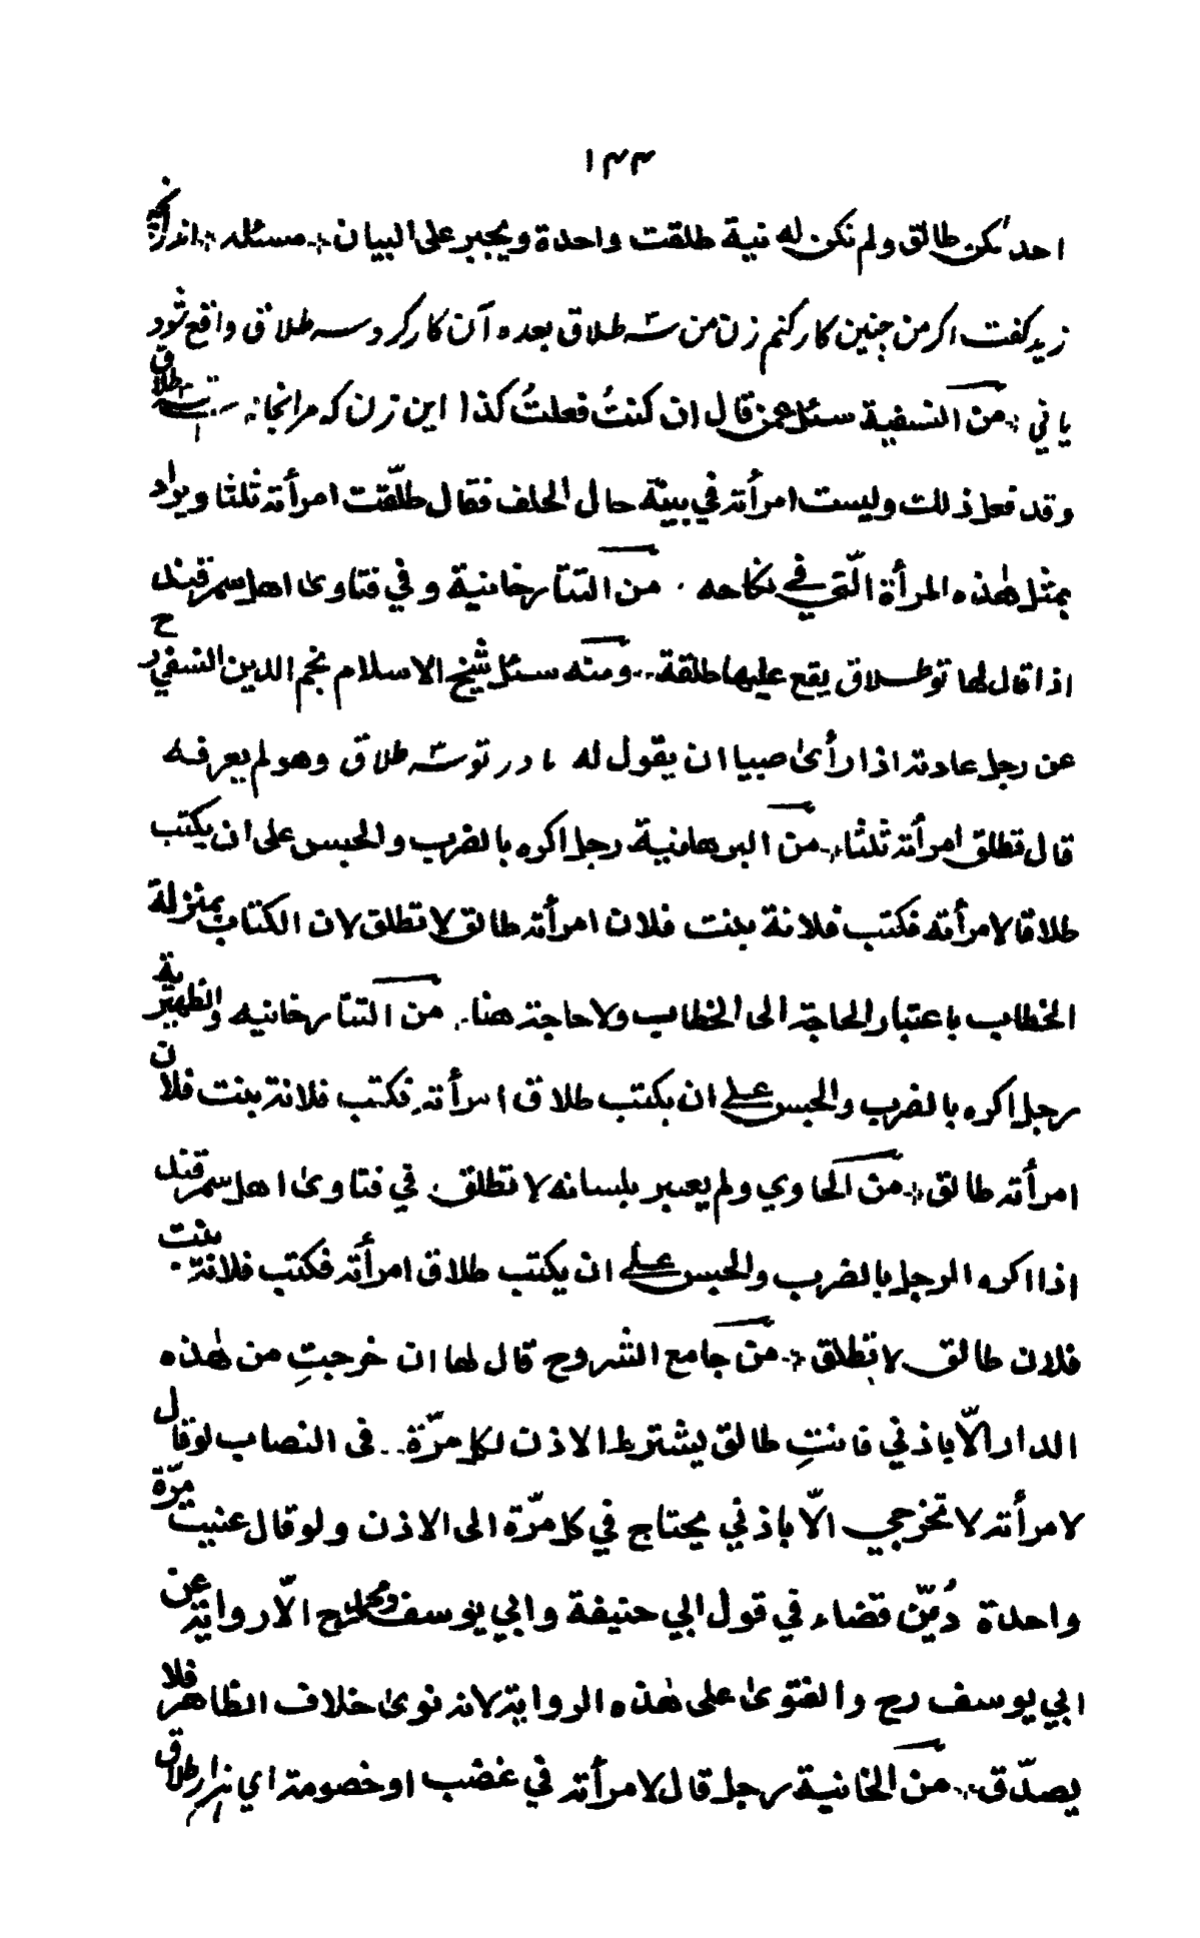 ١٤٤
احدٮكن طالق ولم تكن له نية طلقت واحدة ويجبر على البيان مسئله اندرانچه
زید کفت اکر من چنین کار کنم زن من سه طلاق بعده آن کار کرد سه طلاق واقع شود
یا نی من النسفية سئل عمن قال ان كنتُ فعلتُ كذا این زن که مرا بخانه است بسه طلاق
وقد فعل ذلك وليست امرأته في بيته حال الحلف فقال طلّقت امرأته ثلثا ويراد
بمثل هٰذه المرأة الّتي في نكاحه من التتارخانية وفي فتاوىٰ اهل سمرقند
اذا قال لها تو طلاق يقع عليها طلقة ومنه سئل شيخ الاسلام نجم الدين النسفي رح
عن رجل عادته اذا رأىٰ صبيا ان يقول له مادر تو سه طلاق وهو لم يعرفه
قال تطلق امرأته ثلثا من البرهانية رجل اكره بالضرب والحبس على ان يكتب
طلاقا لامرأته فكتب فلانة بنت فلان امرأته طالق لا تطلق لان الكتاب بمنزلة
الخطاب باعتبار الحاجة الى الخطاب ولا حاجة هنا من التتارخانيه والظهيرية
رجل اكره بالضرب والحبس على ان يكتب طلاق امرأته فكتب فلانة بنت فلان
امرأته طالق من الحاوي ولم يعبر بلسانه لا تطلق في فتاوىٰ اهل سمرقند
اذا اكره الرجل بالضرب والحبس على ان يكتب طلاق امرأته فكتب فلانة بنت
فلان طالق لا تطلق من جامع الشروح قال لها ان خرجتِ من هٰذه
الدار الّا باذني فانتِ طالق يشترط الاذن لكل مرّة في النصاب لو قال
لامرأته لا تخرجي الّا باذني يحتاج في كل مرّة الى الاذن ولو قال عنيت مرّة
واحدة دُيّن قضاء في قول ابي حنيفة وابي يوسف ومحمد رح الّا رواية عن
ابي يوسف رح والفتوىٰ على هٰذه الرواية لانه نوىٰ خلاف الظاهر فلا
يصدّق من الخانية رجل قال لامرأته في غضب او خصومة اي هزار طلاق